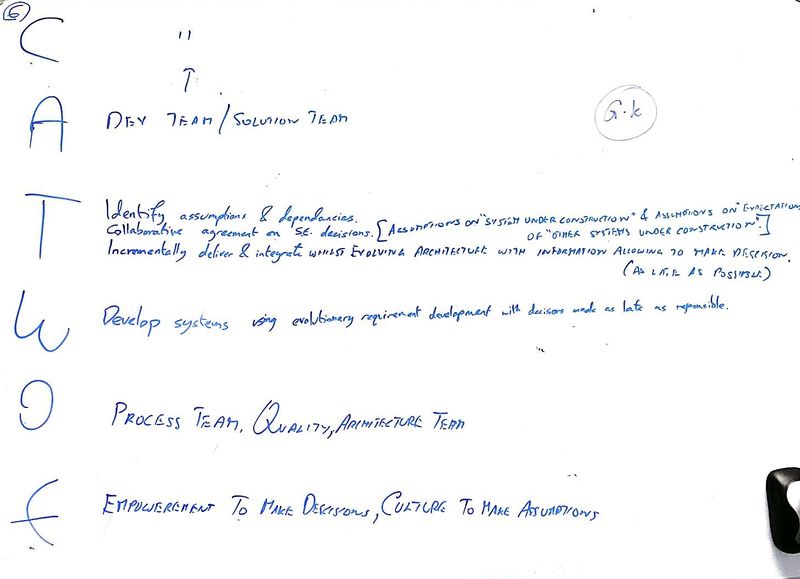 6
C "
↑
A DEV TEAM/SOLUTION TEAM
G.K
T Identify assumptions & dependancies.
Collaborative agreement on S.E. decisions. [ASSUMPTIONS ON "SYSTEM UNDER CONSTRUCTION" & ASSUMPTIONS ON "EXPECTATIONS
OF "OTHER SYSTEMS UNDER CONSTRUCTION".]
Incrementally deliver & integrate WHILST EVOLVING ARCHITECTURE WITH INFORMATION ALLOWING TO MAKE DECISION.
(AS LATE AS POSSIBLE)
W Develop systems using evolutionary requirement development with decisions made as late as responsible.
O PROCESS TEAM, QUALITY, ARCHITECTURE TEAM
E EMPOWEREMENT TO MAKE DECISIONS, CULTURE TO MAKE ASSUMPTIONS